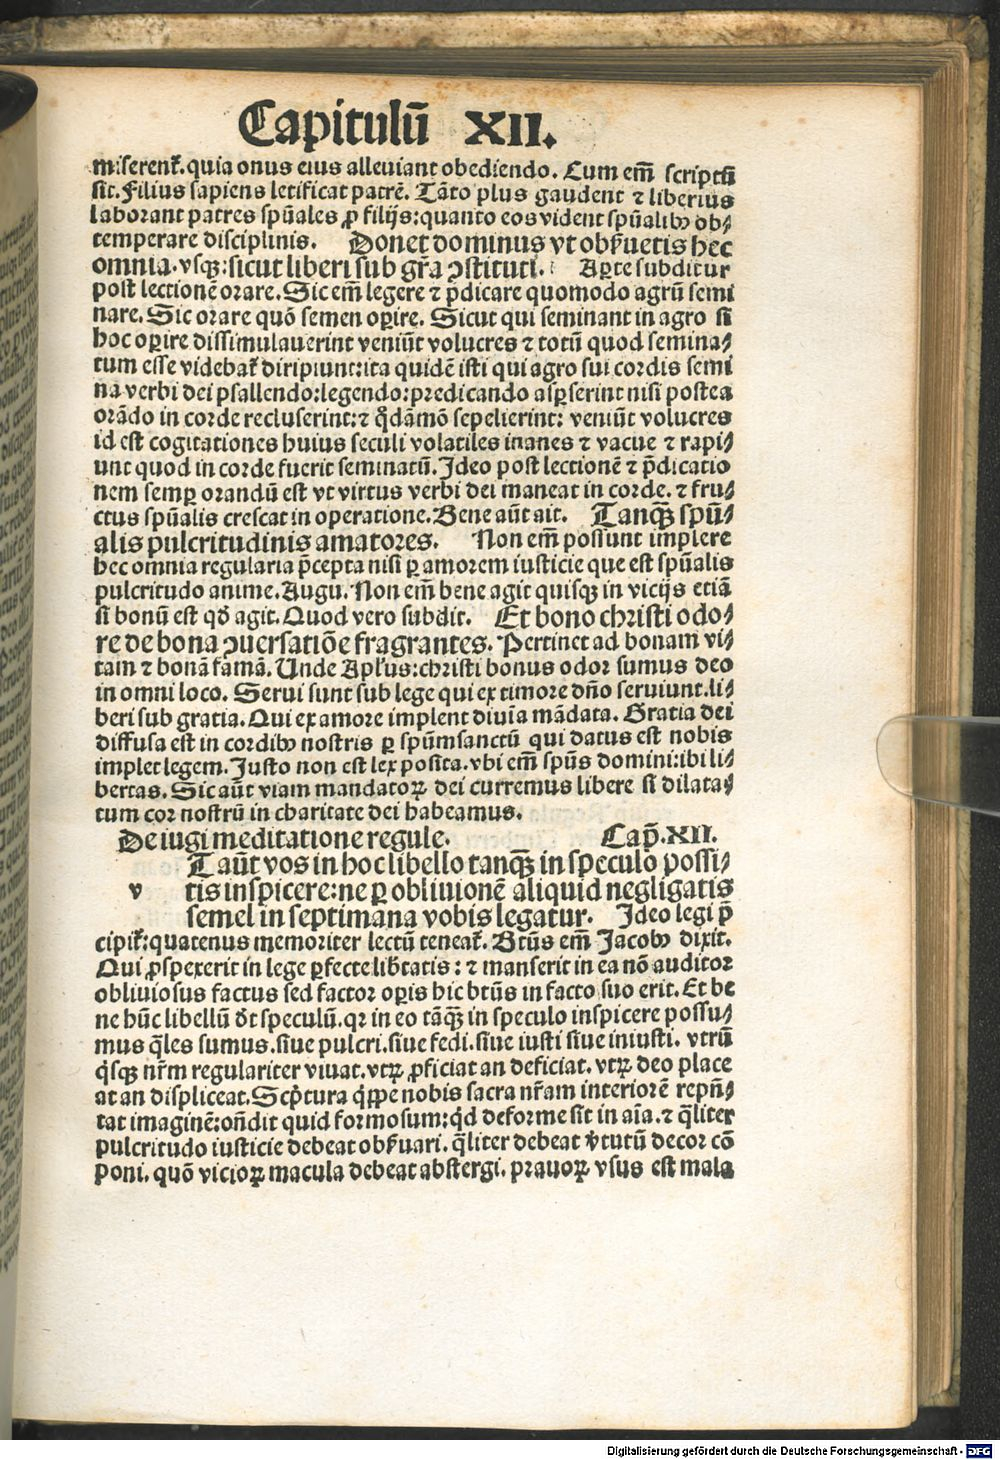 Capitulũ XII.
miserent᷑. quia onus eius alleuiant obediendo. Cum em̃ scriptũ
sit. Filius sapiens letificat patrẽ. Tãto plus gaudent ⁊ liberius
laborant patres spũales ꝓ filijs: quanto eos vident spũalibꝰ ob⸗
temperare disciplinis. Donet dominus vt obẜuetis hec
omnia. vsqꝫ: sicut liberi sub gr̃a ꝯstituti. Aꝑte subditur
post lectionẽ orare. Sic em̃ legere ⁊ p̃dicare quomodo agrũ semi
nare. Sic orare quõ semen oꝑire. Sicut qui seminant in agro si
hoc oꝑire dissimulauerint veniũt volucres ⁊ totũ quod semina⸗
tum esse videbat᷑ diripiunt: ita quidẽ isti qui agro sui cordis semi
na verbi dei psallendo: legendo: predicando asꝑserint nisi postea
orãdo in corde recluserint: ⁊ q̃dãmõ sepelierint: veniũt volucres
id est cogitationes huius seculi volatiles inanes ⁊ vacue ⁊ rapi⸗
unt quod in corde fuerit seminatũ. Ideo post lectionẽ ⁊ p̃dicatio
nem semꝑ orandũ est vt virtus verbi dei maneat in corde. ⁊ fru⸗
ctus spũalis crescat in operatione. Bene aũt ait. Tanqꝫ̃ spũ⸗
alis pulcritudinis amatores. Non em̃ possunt implere
hec omnia regularia p̃cepta nisi ꝑ amorem iusticie que est spũalis
pulcritudo anime. Augu. Non em̃ bene agit quisqꝫ in vicijs etiã
si bonũ est qđ agit. Quod vero subdit. Et bono christi odo⸗
re de bona ꝯuersatiõe fragrantes. Pertinet ad bonam vi⸗
tam ⁊ bonã famã. Unde Apl'us: christi bonus odor sumus deo
in omni loco. Serui sunt sub lege qui ex timore dño seruiunt. li⸗
beri sub gratia. Qui ex amore implent diuĩa mãdata. Gratia dei
diffusa est in cordibꝰ nostris ꝑ spũmsanctũ qui datus est nobis
implet legem. Justo non est lex posita. vbi em̃ spũs domini: ibi li⸗
bertas. Sic aũt viam mandatoꝝ dei curremus libere si dilata⸗
tum cor nostrũ in charitate dei habeamus.
De iugi meditatione regule. Cap̃. XII.
v Taũt vos in hoc libello tanqꝫ̃ in speculo possi⸗
tis inspicere: ne ꝑ obliuionẽ aliquid negligatis
semel in septimana vobis legatur. Ideo legi p̃
cipit᷑: quatenus memoriter lectũ teneat᷑. Btũs em̃ Jacobꝰ dixit.
Qui ꝓspexerit in lege ꝑfecte lib̃tatis: ⁊ manserit in ea nõ auditor
obliuiosus factus sed factor oꝑis hic btũs in facto suo erit. Et be
ne hũc libellũ d̃t speculũ. qꝛ in eo tãqꝫ̃ in speculo inspicere possu⸗
mus q̃les sumus. siue pulcri. siue fedi. siue iusti siue iniusti. vtrũ
q̃sqꝫ nr̃m regulariter viuat. vtꝝ ꝓficiat an deficiat. vtꝝ deo place
at an displiceat. Scp̃tura q̃ppe nobis sacra nr̃am interiorẽ repñ⸗
tat imaginẽ: oñdit quid formosum: q̃d deforme sit in aĩa. ⁊ q̃liter
pulcritudo iusticie debeat obẜuari. q̃liter debeat v̾tutũ decor cõ
poni. quõ vicioꝝ macula debeat abstergi. prauoꝝ vsus est mala
Digitalisierung gefördert durch die Deutsche Forschungsgemeinschaft - DFG